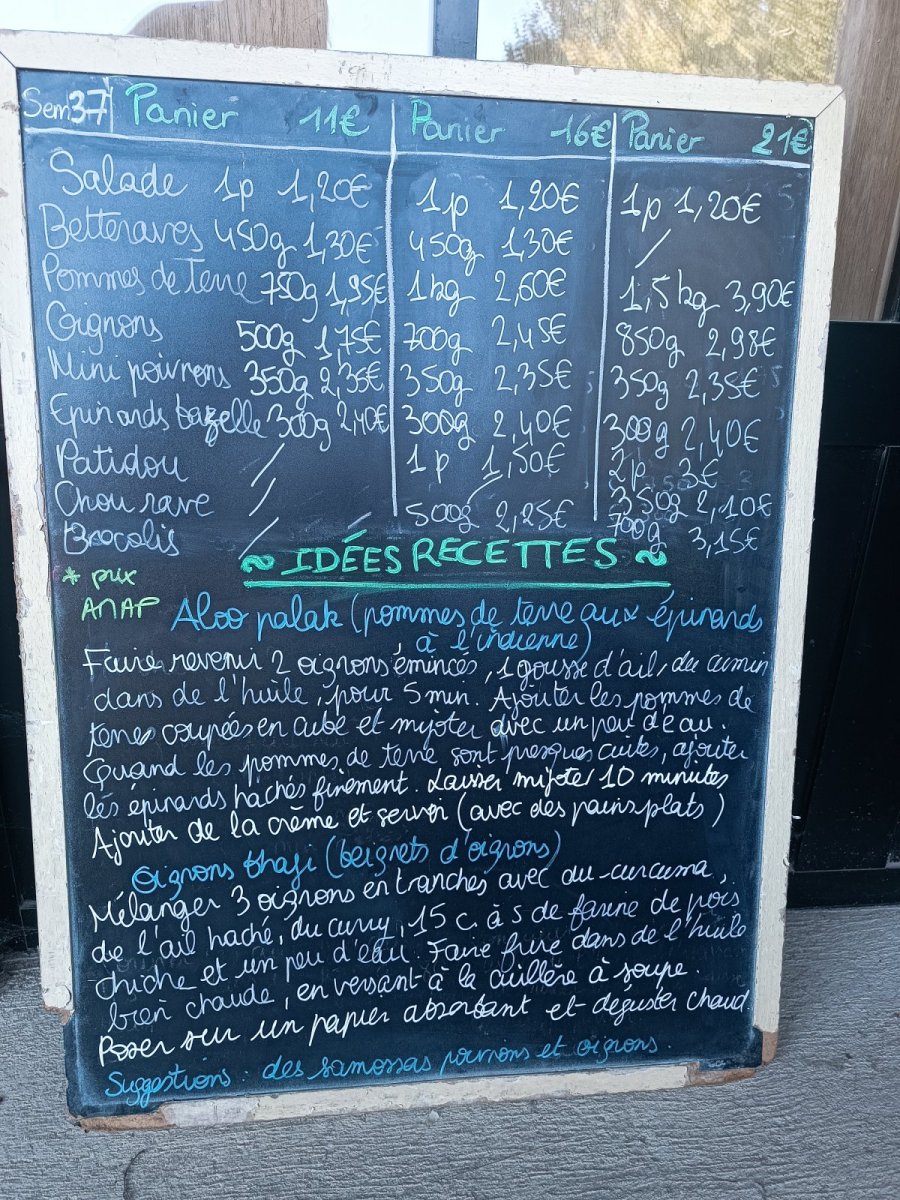 Sem37 Panier 11€ Panier 16€ Panier 21€
Salade 1p 1,20€ 1p 1,20€ 1p 1,20€
Betteraves 450g 1,30€ 450g 1,30€ /
Pommes de terre 750g 1,95€ 1kg 2,60€ 1,5kg 3,90€
Oignons 500g 1,75€ 700g 2,45€ 850g 2,98€
Mini poivrons 350g 2,35€ 350g 2,35€ 350g 2,35€
Epinards bazelle 300g 2,40€ 300g 2,40€ 300g 2,40€
Patidou / 1p 1,50€ 2p 3€
Chou rave / / 350g 2,10€
Brocolis / 500g 2,25€ 700g 3,15€
~ IDÉES RECETTES ~
* prix
AMAP
Aloo palak (pommes de terre aux épinards
à l'indienne)
Faire revenir 2 oignons émincés, 1 gousse d'ail, du cumin
dans de l'huile, pour 5 min. Ajouter les pommes de
terres coupées en cube et mijoter avec un peu d'eau.
Quand les pommes de terre sont presques cuites, ajouter
les épinards hachés finement. Laisser mijoter 10 minutes
Ajouter de la crème et servir (avec des pains plats)
Oignons bhaji (beignets d'oignons)
Mélanger 3 oignons en tranches avec du curcuma,
de l'ail haché, du curry, 15 c. à s de farine de pois
chiche et un peu d'eau. Faire frire dans de l'huile
bien chaude, en versant à la cuillère à soupe.
Poser sur un papier absorbant et déguster chaud
Suggestions : des samossas poivrons et oignons.